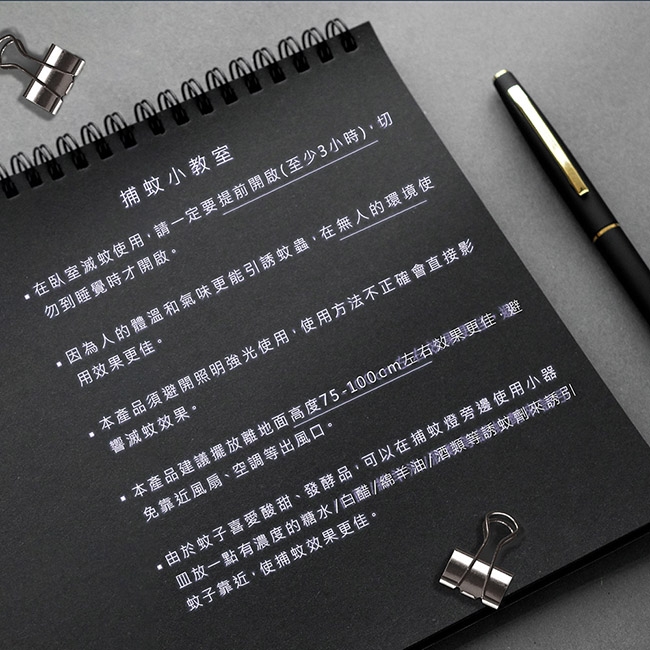 捕蚊小教室
▪在臥室滅蚊使用，請一定要提前開啟(至少3小時)，切
勿到睡覺時才開啟。
▪因為人的體溫和氣味更能引誘蚊蟲，在無人的環境使
用效果更佳。
▪本產品須避開照明強光使用，使用方法不正確會直接影
響滅蚊效果。
▪本產品建議擺放離地面高度75-100cm左右效果更佳，避
免靠近風扇、空調等出風口。
▪由於蚊子喜愛酸甜、發酵品，可以在捕蚊燈旁邊使用小器
皿放一點有濃度的糖水/白醋/綿羊油/酒類等誘蚊劑來誘引
蚊子靠近，使捕蚊效果更佳。